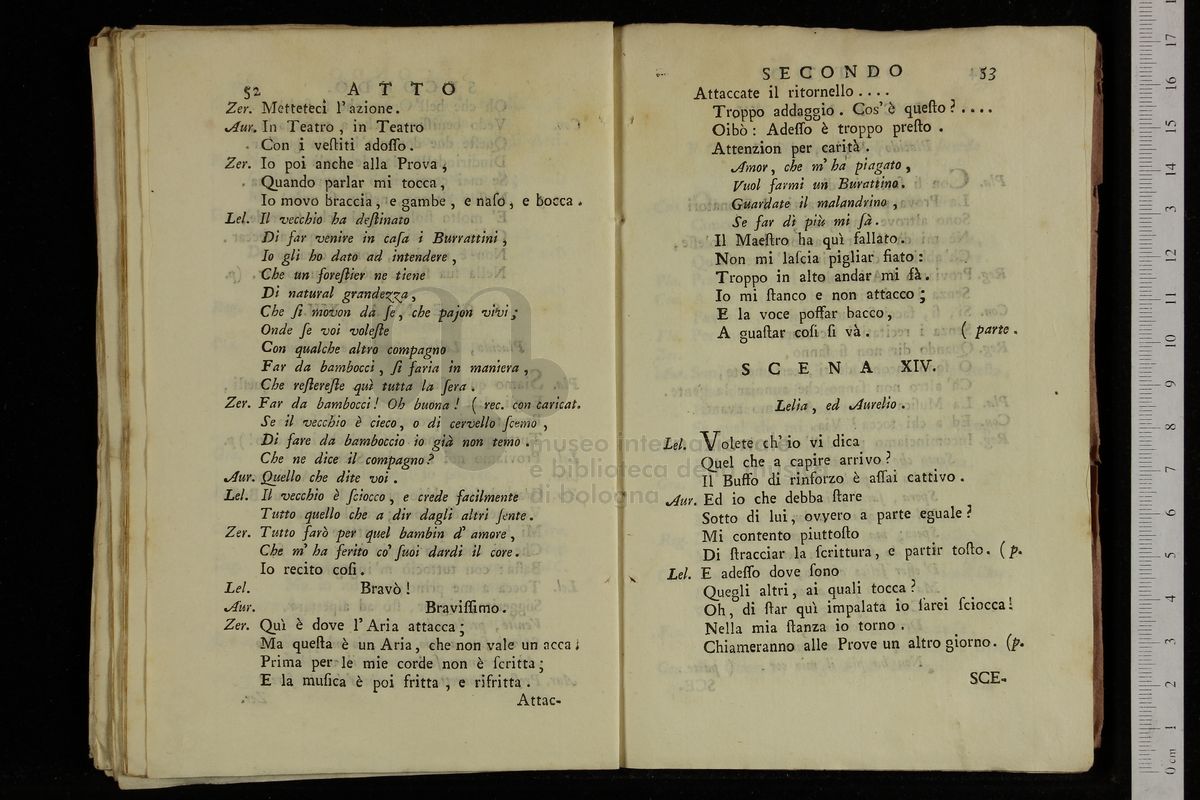 52 ATTO
Zer. Mettetecì l' azione.
Aur. In Teatro, in Teatro
Con i veſtiti adoſſo.
Zer. Io poi anche alla Prova,
Quando parlar mi tocca,
Io movo braccia, e gambe, e naſo, e bocca.
Lel. Il vecchio ha deſtinato
Di far venire in caſa i Burrattini,
Io gli ho dato ad intendere,
Che un foreſtier ne tiene
Di natural grandezza,
Che ſi movon da ſe, che pajon vivi;
Onde ſe voi voleſte
Con qualche altro compagno
Far da bambocci, ſi faria in maniera,
Che reſtereſte quì tutta la ſera.
Zer. Far da bambocci! Oh buona! ( rec. con caricat.
Se il vecchio è cieco, o di cervello ſcemo,
Di fare da bamboccio io già non temo.
Che ne dice il compagno?
Aur. Quello che dite voi.
Lel. Il vecchio è ſciocco, e crede facilmente
Tutto quello che a dir dagli altri ſente.
Zer. Tutto farò per quel bambin d' amore,
Che m' ha ferito co' ſuoi dardi il core.
Io recito coſi.
Lel. Bravò!
Aur. Braviſſimo.
Zer. Quì è dove l' Aria attacca;
Ma queſta è un Aria, che non vale un acca;
Prima per le mie corde non è ſcritta;
E la muſica è poi fritta, e rifritta.
Attac-
SECONDO 53
Attaccate il ritornello....
Troppo addaggio. Cos' è queſto?....
Oibò: Adeſſo è troppo preſto.
Attenzion per carità.
Amor, che m' ha piagato,
Vuol farmi un Burattino.
Guardate il malandrino,
Se far di più mi ſà.
Il Maeſtro ha quì fallato.
Non mi laſcia pigliar fiato:
Troppo in alto andar mi fà.
Io mi ſtanco e non attacco;
E la voce poſſar bacco,
A guaſtar coſi ſi và. ( parte.
SCENA XIV.
Lelia, ed Aurelio.
Lel. Volete ch' io vi dica
Quel che a capire arrivo?
Il Buffo di rinforzo è aſſai cattivo.
Aur. Ed io che debba ſtare
Sotto di lui, ovvero a parte eguale?
Mi contento piuttoſto
Di ſtracciar la ſcrittura, e partir toſto. (p.
Lel. E adeſſo dove ſono
Quegli altri, ai quali tocca?
Oh, di ſtar quì impalata io ſarei ſciocca!
Nella mia ſtanza io torno.
Chiameranno alle Prove un altro giorno. (p.
SCE-
museo internazionale
e biblioteca della musica
di bologna